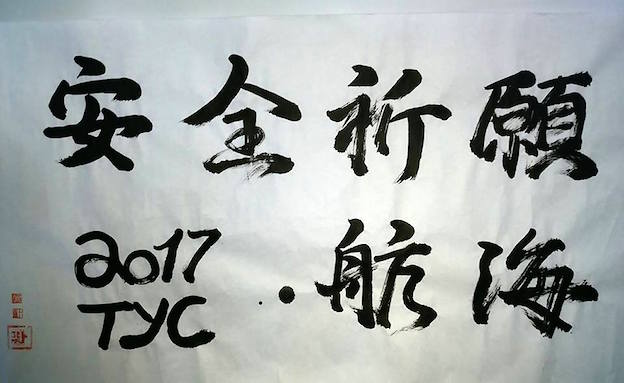 安全祈願
2017
TYC
・航海